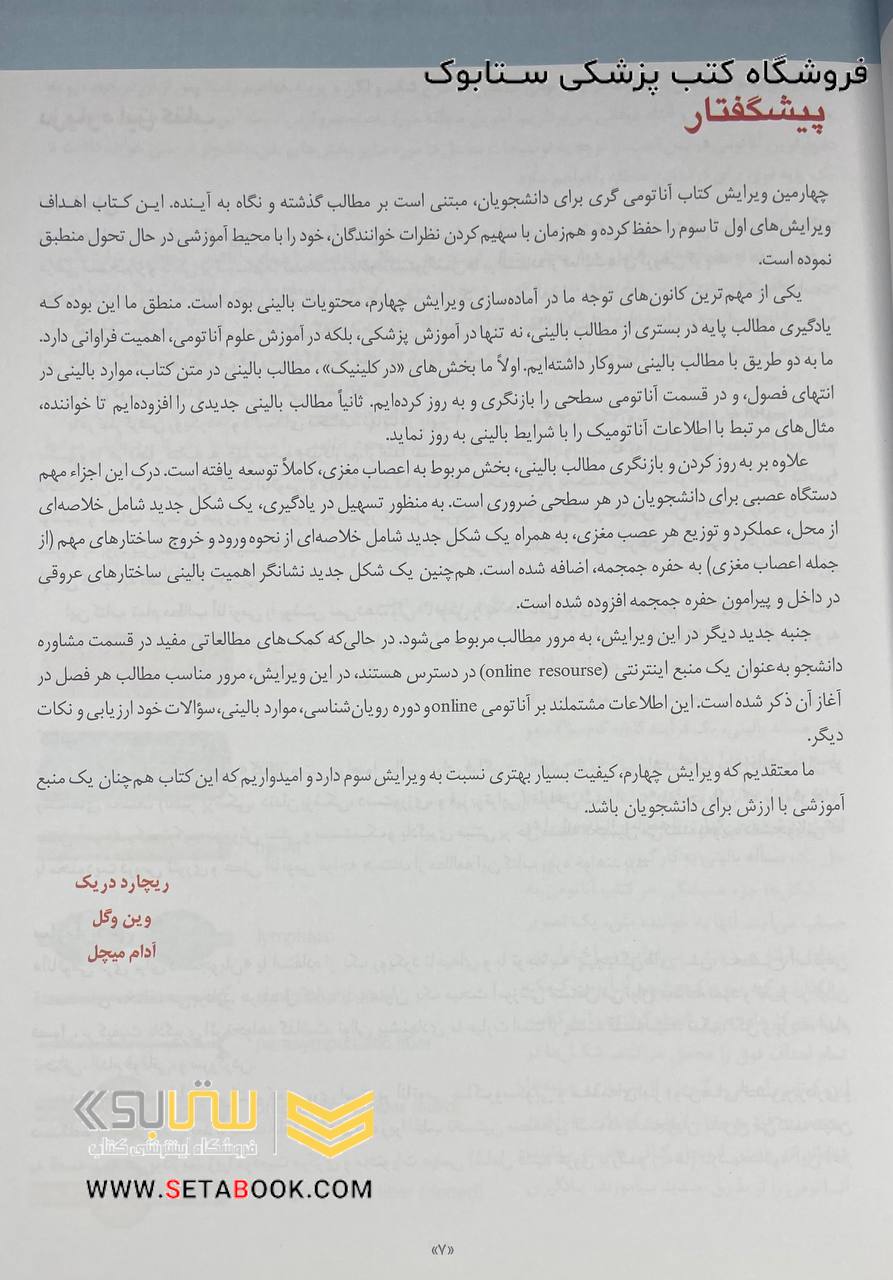 فروشگاه کتب پزشکی ستابوک
پیشگفتار
چهارمین ویرایش کتاب آناتومی گری برای دانشجویان، مبتنی است بر مطالب گذشته و نگاه به آینده. این کتاب اهداف
ویرایش‌های اول تا سوم را حفظ کرده و هم‌زمان با سهیم کردن نظرات خوانندگان، خود را با محیط آموزشی در حال تحول منطبق
نموده است.
یکی از مهم‌ترین کانون‌های توجه ما در آماده‌سازی ویرایش چهارم، محتویات بالینی بوده است. منطق ما این بوده که
یادگیری مطالب پایه در بستری از مطالب بالینی، نه تنها در آموزش پزشکی، بلکه در آموزش علوم آناتومی، اهمیت فراوانی دارد.
ما به دو طریق با مطالب بالینی سروکار داشته‌ایم. اولاً ما بخش‌های «در کلینیک»، مطالب بالینی در متن کتاب، موارد بالینی در
انتهای فصول، و در قسمت آناتومی سطحی را بازنگری و به روز کرده‌ایم. ثانیاً مطالب بالینی جدیدی را افزوده‌ایم تا خواننده،
مثال‌های مرتبط با اطلاعات آناتومیک را با شرایط بالینی به روز نماید.
علاوه بر به روز کردن و بازنگری مطالب بالینی، بخش مربوط به اعصاب مغزی، کاملاً توسعه یافته است. درک این اجزاء مهم
دستگاه عصبی برای دانشجویان در هر سطحی ضروری است. به منظور تسهیل در یادگیری، یک شکل جدید شامل خلاصه‌ای
از محل، عملکرد و توزیع هر عصب مغزی، به همراه یک شکل جدید شامل خلاصه‌ای از نحوه ورود و خروج ساختارهای مهم (از
جمله اعصاب مغزی) به حفره جمجمه، اضافه شده است. هم‌چنین یک شکل جدید نشانگر اهمیت بالینی ساختارهای عروقی
در داخل و پیرامون حفره جمجمه افزوده شده است.
جنبه جدید دیگر در این ویرایش، به مرور مطالب مربوط می‌شود. در حالی‌که کمک‌های مطالعاتی مفید در قسمت مشاوره
دانشجو به‌عنوان یک منبع اینترنتی (online resourse) در دسترس هستند، در این ویرایش، مرور مناسب مطالب هر فصل در
آغاز آن ذکر شده است. این اطلاعات مشتملند بر آناتومی online و دوره رویان‌شناسی، موارد بالینی، سؤالات خود ارزیابی و نکات
دیگر.
ما معتقدیم که ویرایش چهارم، کیفیت بسیار بهتری نسبت به ویرایش سوم دارد و امیدواریم که این کتاب هم‌چنان یک منبع
آموزشی با ارزش برای دانشجویان باشد.
ریچارد دریک
وین وگل
آدام میچل
ستابوک
فروشگاه اینترنتی کتاب
WWW.SETABOOK.COM
«۷»